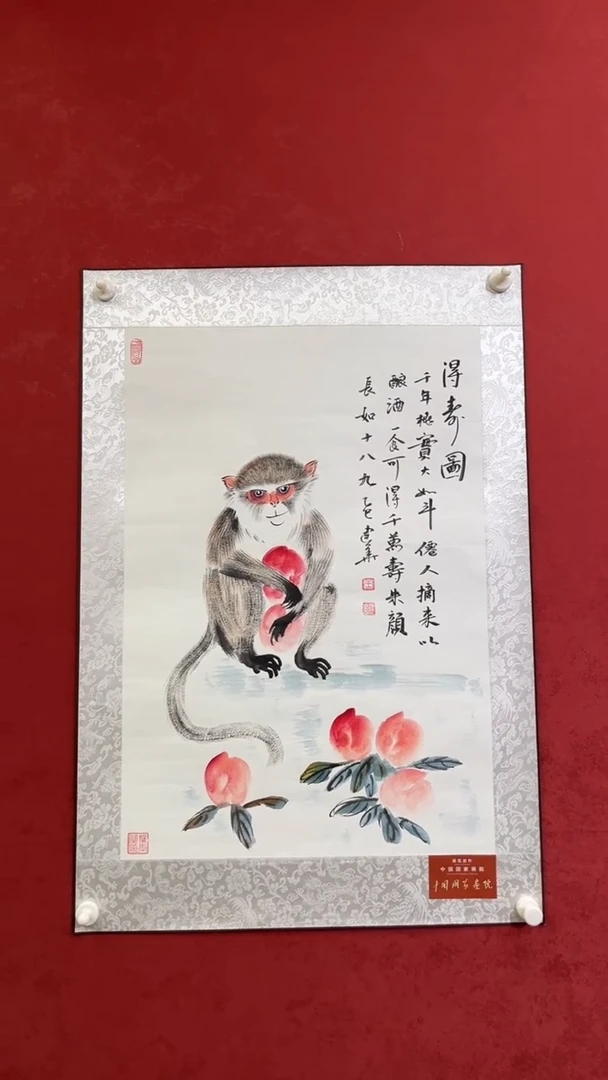 得壽圖
千年桃實大如斗僊人摘來以
釀酒一食可得千萬壽朱顏
長如十八九乙巳建華
中国国家画院
中国国家画院